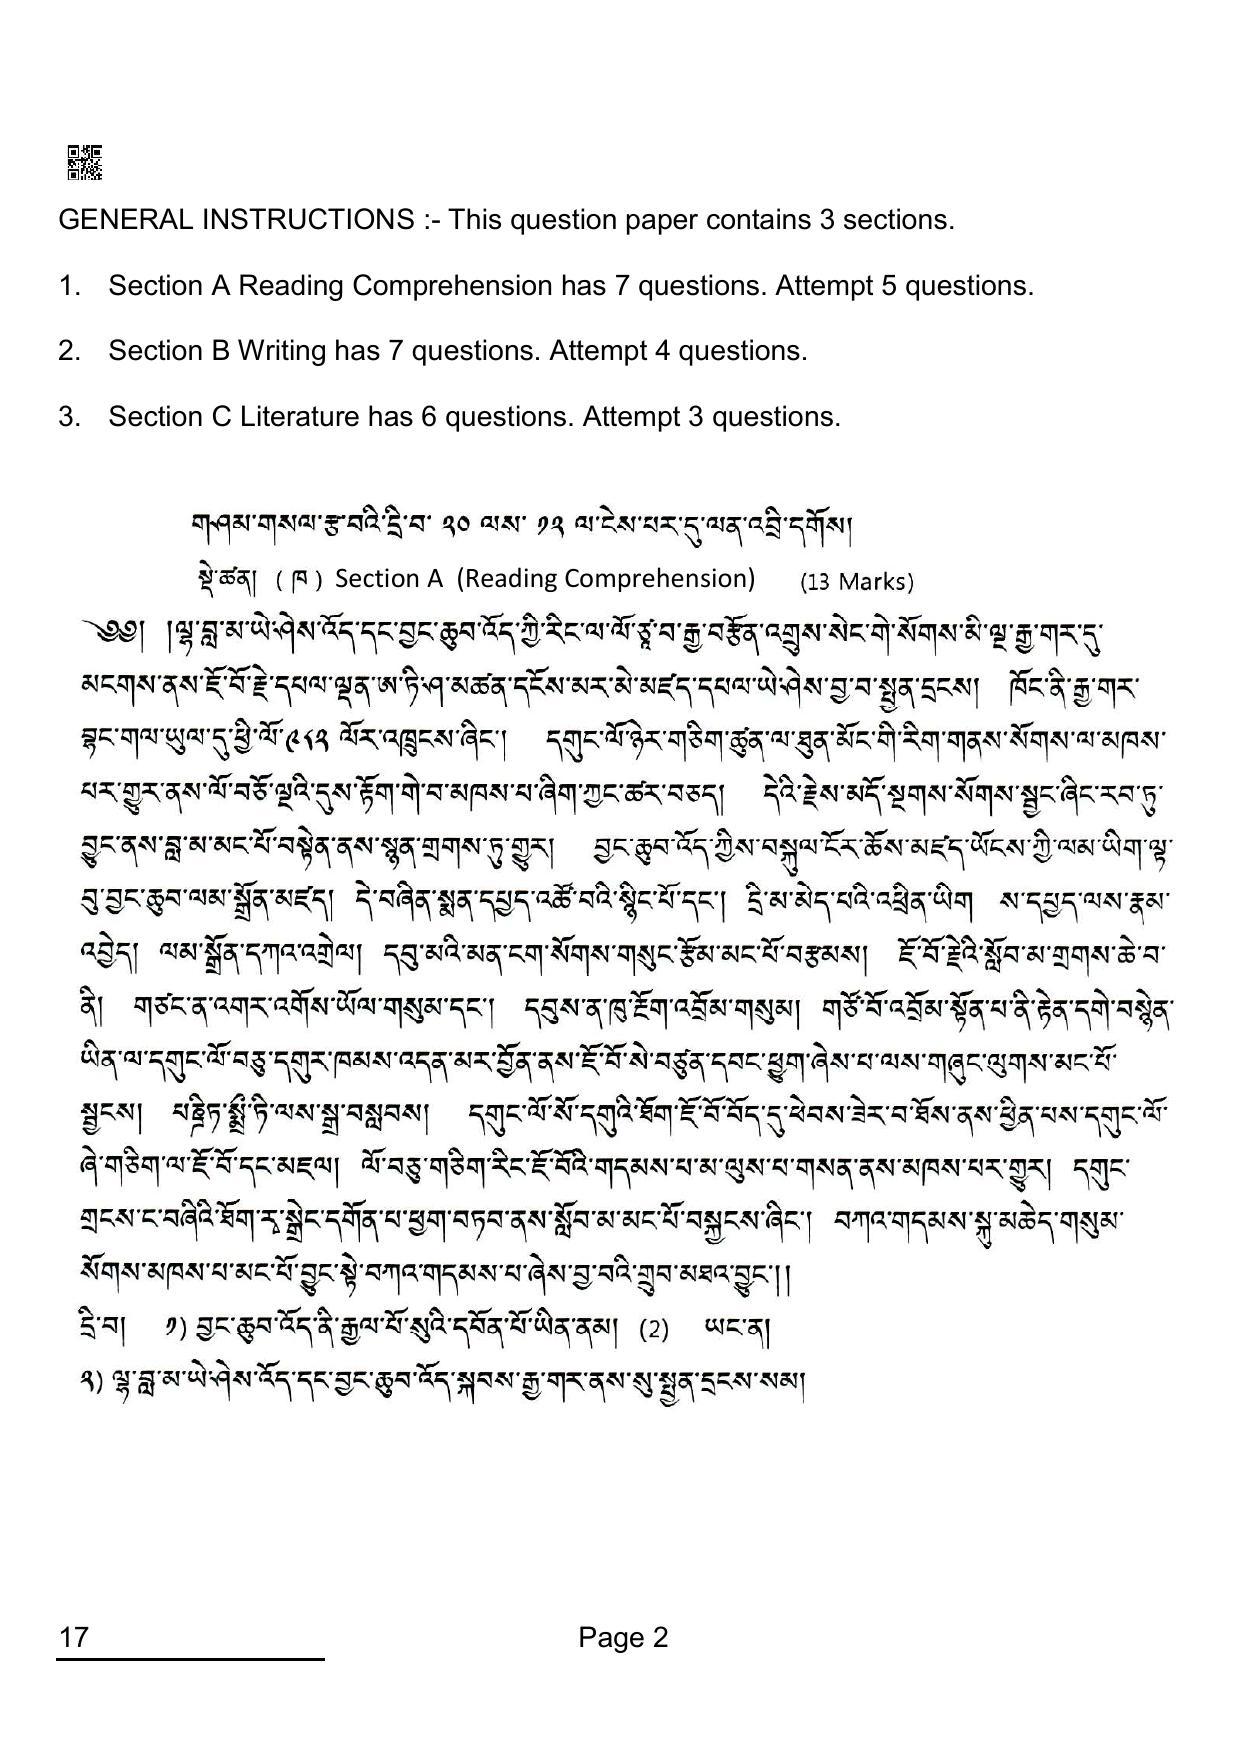 GENERAL INSTRUCTIONS :- This question paper contains 3 sections.
1. Section A Reading Comprehension has 7 questions. Attempt 5 questions.
2. Section B Writing has 7 questions. Attempt 4 questions.
3. Section C Literature has 6 questions. Attempt 3 questions.
གཤམ་གསལ་རྩ་བའི་དྲི་བ་ ༢༠ ལས་ ༡༢ ལ་ངེས་པར་དུ་ལན་འབྲི་དགོས།
སྡེ་ཚན། ( ཁ ) Section A (Reading Comprehension) (13 Marks)
༄༅། །ལྷ་བླ་མ་ཡེ་ཤེས་འོད་དང་བྱང་ཆུབ་འོད་ཀྱི་རིང་ལ་ལོ་ཙཱ་བ་རྒྱ་བརྩོན་འགྲུས་སེང་གེ་སོགས་མི་ལྔ་རྒྱ་གར་དུ་
མངགས་ནས་ཇོ་བོ་རྗེ་དཔལ་ལྡན་ཨ་ཏི་ཤ་མཚན་དངོས་མར་མེ་མཛད་དཔལ་ཡེ་ཤེས་བྱ་བ་སྤྱན་དྲངས། ཁོང་ནི་རྒྱ་གར་
བྷང་གལ་ཡུལ་དུ་ཕྱི་ལོ་༩༨༢ ལོར་འཁྲུངས་ཞིང་། དགུང་ལོ་ཉེར་གཅིག་ཚུན་ལ་ཐུན་མོང་གི་རིག་གནས་སོགས་ལ་མཁས་
པར་གྱུར་ནས་ལོ་བཅོ་ལྔའི་དུས་རྟོག་གེ་བ་མཁས་པ་ཞིག་ཀྱང་ཚར་བཅད། དེའི་རྗེས་མདོ་སྔགས་སོགས་སྦྱང་ཞིང་རབ་ཏུ་
བྱུང་ནས་བླ་མ་མང་པོ་བསྟེན་ནས་སྙན་གྲགས་ཏུ་གྱུར། བྱང་ཆུབ་འོད་ཀྱིས་བསྐུལ་ངོར་ཆོས་མཛད་ཡོངས་ཀྱི་ལམ་ཡིག་ལྟ་
བུ་བྱང་ཆུབ་ལམ་སྒྲོན་མཛད། དེ་བཞིན་སྨན་དཔྱད་འཚོ་བའི་སྙིང་པོ་དང་། དྲི་མ་མེད་པའི་འཕྲིན་ཡིག ས་དཔྱད་ལས་རྣམ་
འབྱེད། ལམ་སྒྲོན་དཀའ་འགྲེལ། དབུ་མའི་མན་ངག་སོགས་གསུང་རྩོམ་མང་པོ་བརྩམས། ཇོ་བོ་རྗེའི་སློབ་མ་གྲགས་ཆེ་བ་
ནི། གཙང་ན་འགར་འགོས་ཡོལ་གསུམ་དང་། དབུས་ན་ཁུ་རྔོག་འབྲོམ་གསུམ། གཙོ་བོ་འབྲོམ་སྟོན་པ་ནི་རྟེན་དགེ་བསྙེན་
ཡིན་ལ་དགུང་ལོ་བཅུ་དགུར་ཁམས་འདན་མར་བྱོན་ནས་ཇོ་བོ་སེ་བཙུན་དབང་ཕྱུག་ཞེས་པ་ལས་གཞུང་ལུགས་མང་པོ་
སྦྱངས། པཎྜིཏ་སྨྲྀ་ཏི་ལས་སྒྲ་བསླབས། དགུང་ལོ་སོ་དགུའི་ཐོག་ཇོ་བོ་བོད་དུ་ཕེབས་ཟེར་བ་ཐོས་ནས་ཕྱིན་པས་དགུང་ལོ་
ཞེ་གཅིག་ལ་ཇོ་བོ་དང་མཇལ། ལོ་བཅུ་གཅིག་རིང་ཇོ་བོའི་གདམས་པ་མ་ལུས་པ་གསན་ནས་མཁས་པར་གྱུར། དགུང་
གྲངས་ང་བཞིའི་ཐོག་རྭ་སྒྲེང་དགོན་པ་ཕྱག་བཏབ་ནས་སློབ་མ་མང་པོ་བསྐྱངས་ཞིང་། བཀའ་གདམས་སྐུ་མཆེད་གསུམ་
སོགས་མཁས་པ་མང་པོ་བྱུང་སྟེ་བཀའ་གདམས་པ་ཞེས་བྱ་བའི་གྲུབ་མཐའ་བྱུང་།།
དྲི་བ། ༡) བྱང་ཆུབ་འོད་ནི་རྒྱལ་པོ་སུའི་དབོན་པོ་ཡིན་ནམ། (2) ཡང་ན།
༢) ལྷ་བླ་མ་ཡེ་ཤེས་འོད་དང་བྱང་ཆུབ་འོད་སྐབས་རྒྱ་གར་ནས་སུ་སྤྱན་དྲངས་སམ།
17 Page 2